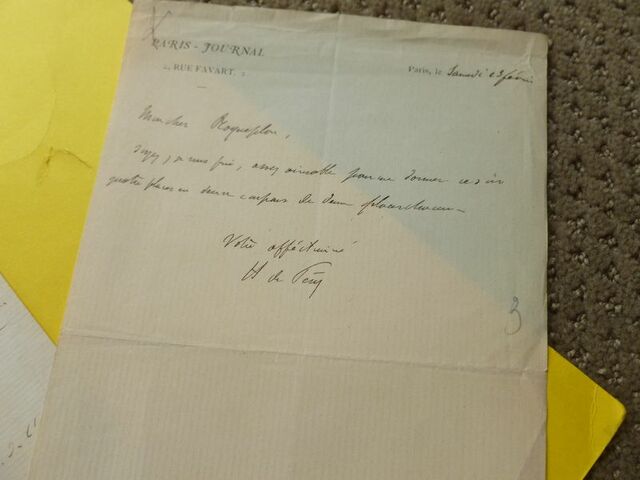 PARIS - JOURNAL
2, RUE FAVART, 2
Paris, le Samedi 23 février
Mon cher Roqueplan,
Soyez, je vous prie, assez aimable pour me donner ce soir
quatre places ou deux coupons de deux
Votre affectionné
H de Pène
3